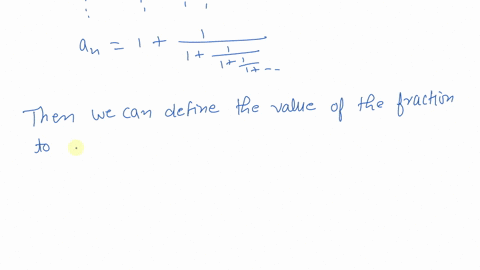 a_n = 1 + 1/(1 + 1/(1 + 1/(1 + ...
Then we can define the value of the fraction
to